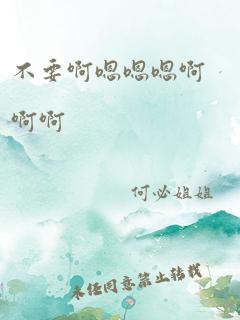 不要啊嗯嗯嗯啊
啊啊
何必姐姐
未经同意禁止转载